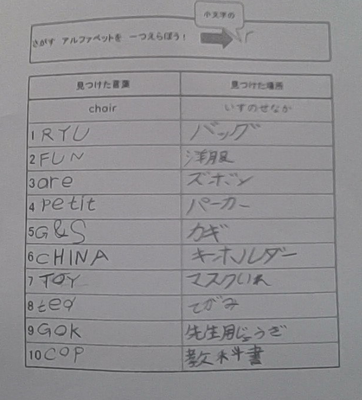 小文字の
さがす アルファベットを 一つえらぼう!
見つけた言葉 見つけた場所
chair いすのせなか
1 RYU バッグ
2 FUN 洋服
3 are ズボン
4 Petit パーカー
5 G&S カギ
6 CHINA キーホルダー
7 TOY マスクいれ
8 tea てがみ
9 GOK 先生用じょうぎ
10 COP 教科書